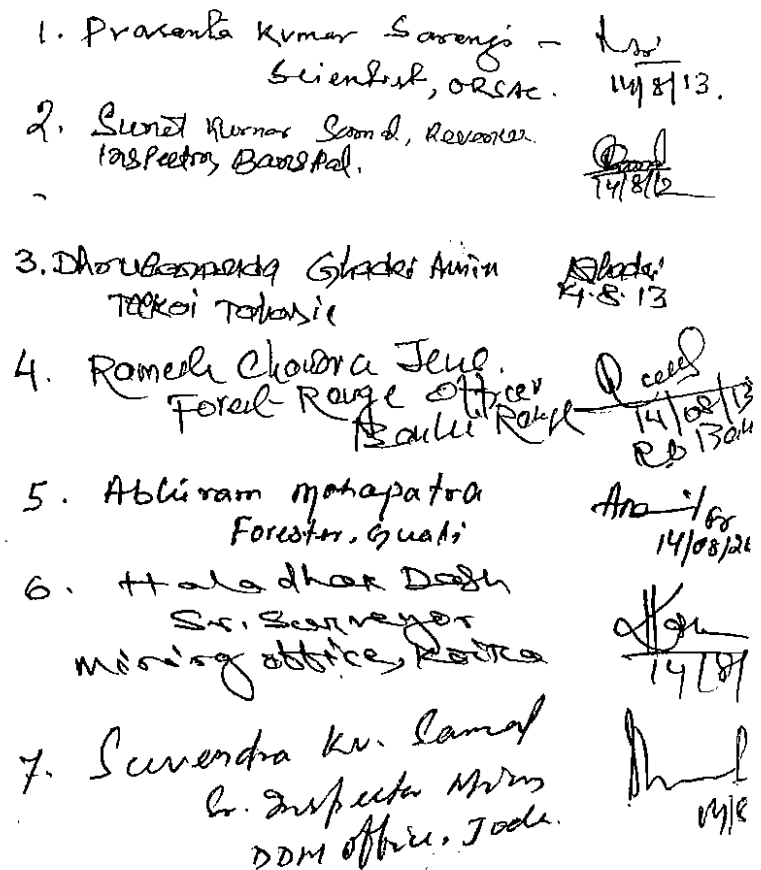 1. Prasanta Kumar Sarangi –
Scientist, ORSAC. 14/8/13.
2. Kumar Samal, Revenue
Inspector, Banspal.
14/8/12
3. Ghadei Amin Ghadei
Telkoi Tahasil 14.8.13
4. Ramesh Chandra Jena.
Forest Range Officer
Range 14/08/13
5. Abhiram Mohapatra
Forester, Guali 14/08/20
6. Haladhar Dash
Sr. Surveyor
Mining office, Koira 14/8/
7. Suvendra Kr. Samal
Sr. Inspector Mines 14/8
DDM office, Joda.